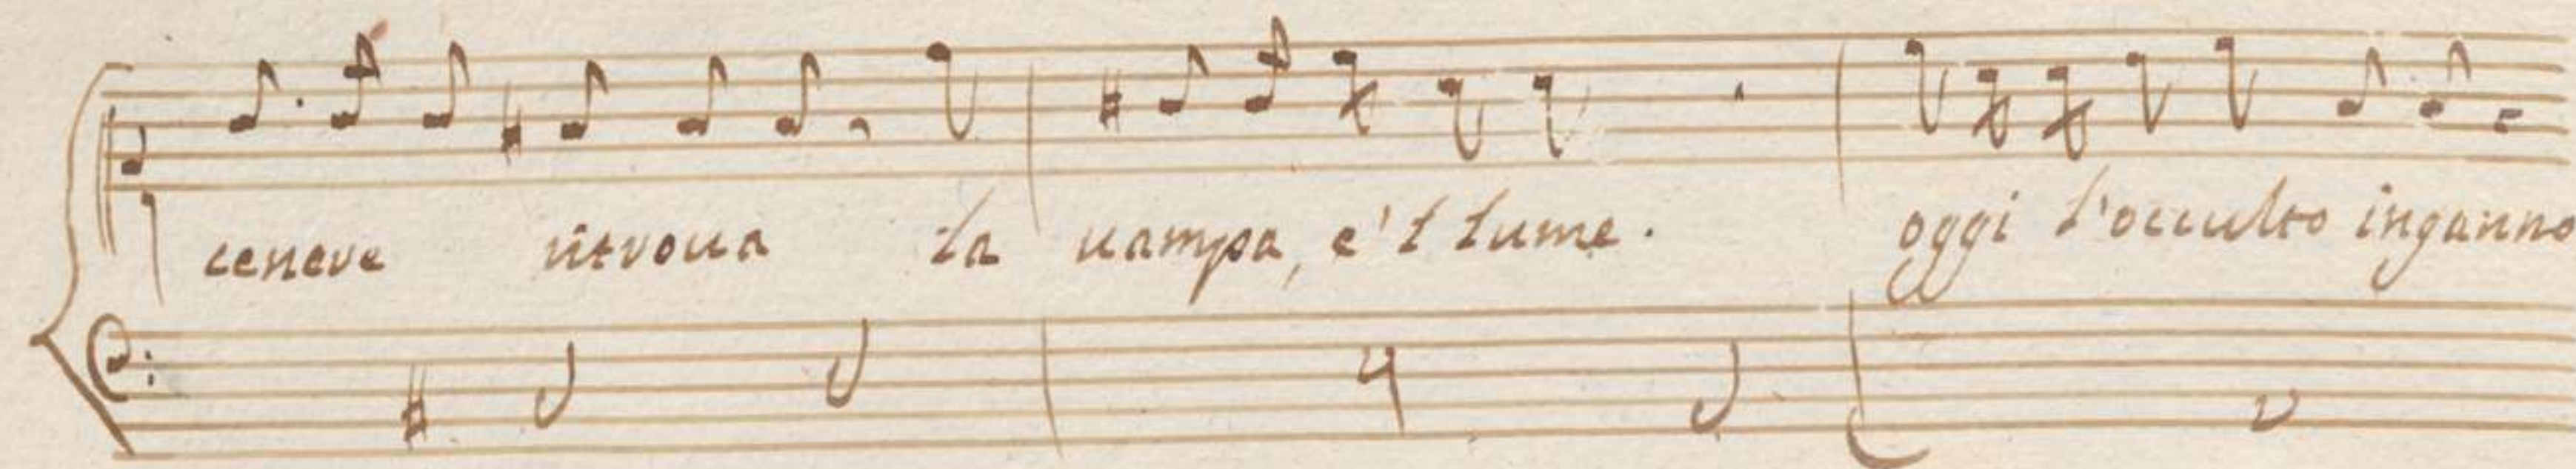 cenere ritroua la uampa, e'l lume. oggi d'occulto inganno